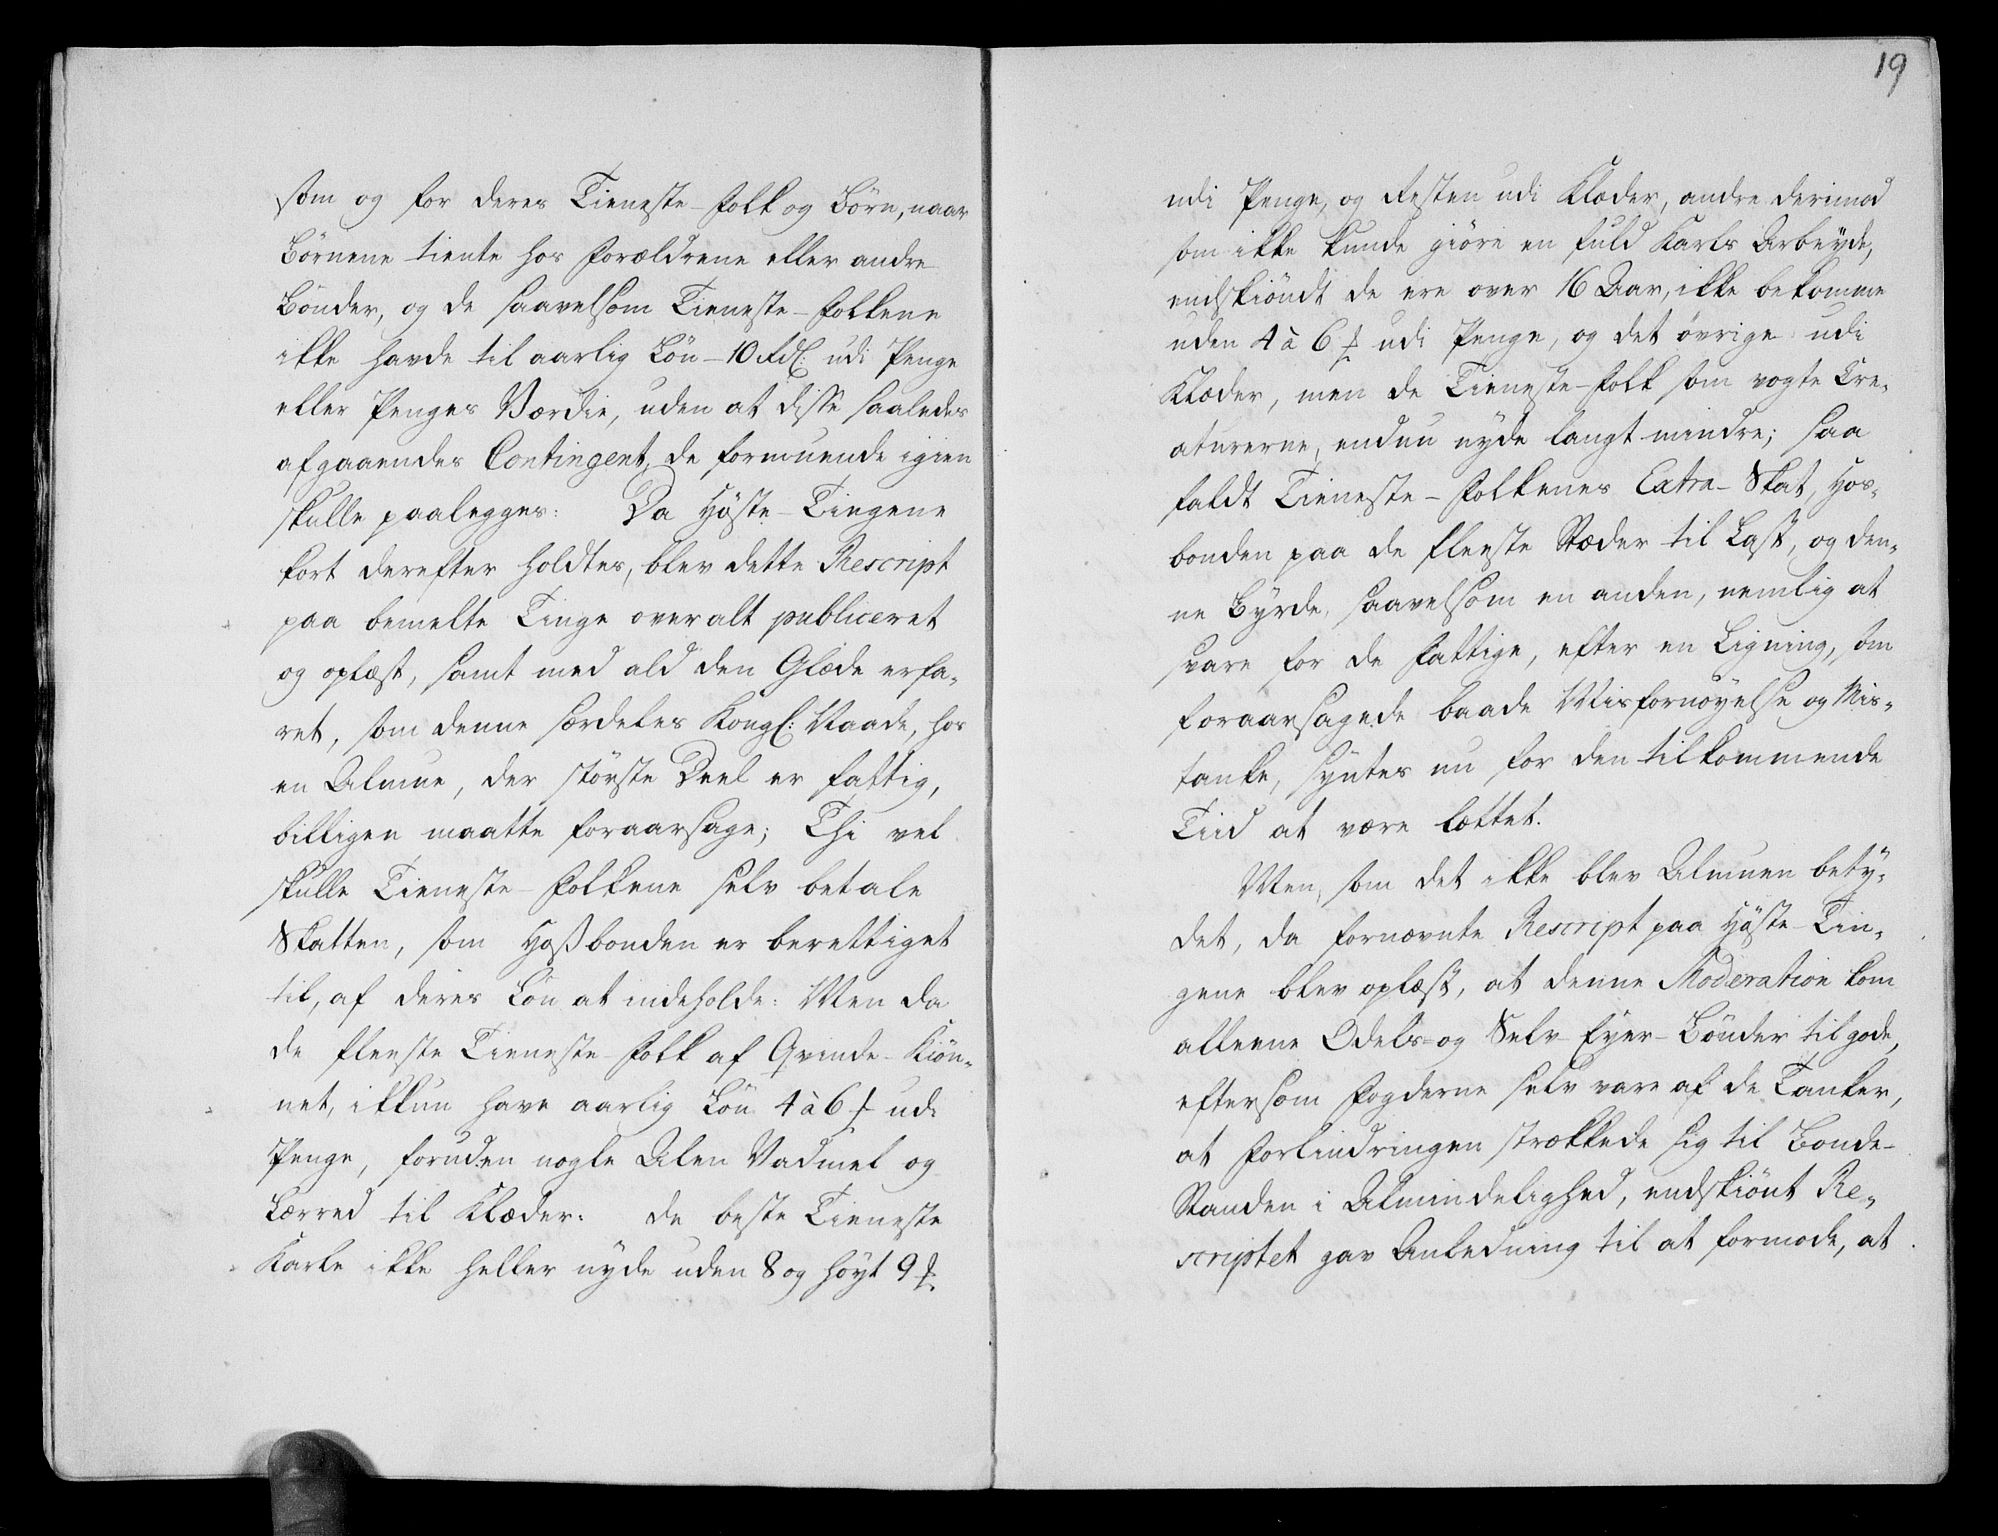 som og for deres Tieneste-Folk og Börn, naar
Börnene tiente hos Forældrene eller andre
Bönder, og de saavelsom Tieneste-Folkene
ikke havde til aarlig Lön - 10 Rdl: udi Penge
eller Penges Værdie, uden at disse saaledes
afgaaendes Contingent, de formuende igien
skulle paalegges: Da Höste-Tingene
kort derefter holdtes, blev dette Rescript
paa bemelte Tinge overalt publiceret
og oplæst, samt med ald den Glæde erfa-
ret, som denne særdeles Kongl: Naade, hos
en Almue, der störste Deel er fattig,
billigen maatte foraarsage; Thi vel
skulle Tieneste-Folkene selv betale
Skatten, som Hosbonden er berettiget
til, af deres Lön at indeholde: Men da
de fleeste Tieneste-Folk af Qvinde-Kiön-
net, ikkun have aarlig Lön 4 à 6 rd udi
Penge, foruden nogle Alen Vadmel og
Lærred til Klæder: de beste Tieneste
Karle ikke heller nyde uden 8 og höyt 9 rd
19
udi Penge, og Resten udi Klæder, andre derimod
som ikke kunde giöre en fuld Karls Arbeyde,
endskiöndt de ere over 16 Aar, ikke bekomme
uden 4 à 6 rd udi Penge, og det övrige udi
Klæder, men de Tieneste-Folk som vogte Cre-
aturerne, endnu nyde langt mindre; saa
faldt Tieneste-Folkenes Extra-Skat, Hos-
bonden paa de fleeste Stæder til Last, og den-
ne Byrde, saavelsom en anden, nemlig at
svare for de Fattige, efter en Ligning, som
foraarsagede baade Misfornöyelse og Mis-
tanke, syntes nu for den tilkommende
Tiid at være lættet.
Men, som det ikke blev Almuen bety-
det, da fornævnte Rescript paa Höste-Tin-
gene blev oplæst, at denne Moderation kom
alleene Odels- og Selv-Eyer-Bönder til gode,
eftersom Fogderne selv vare af de Tanker,
at Forlindringen strækkede sig til Bonde-
Standen i Almindelighed, endskiönt Re-
scriptet gav Anledning til at formode, at